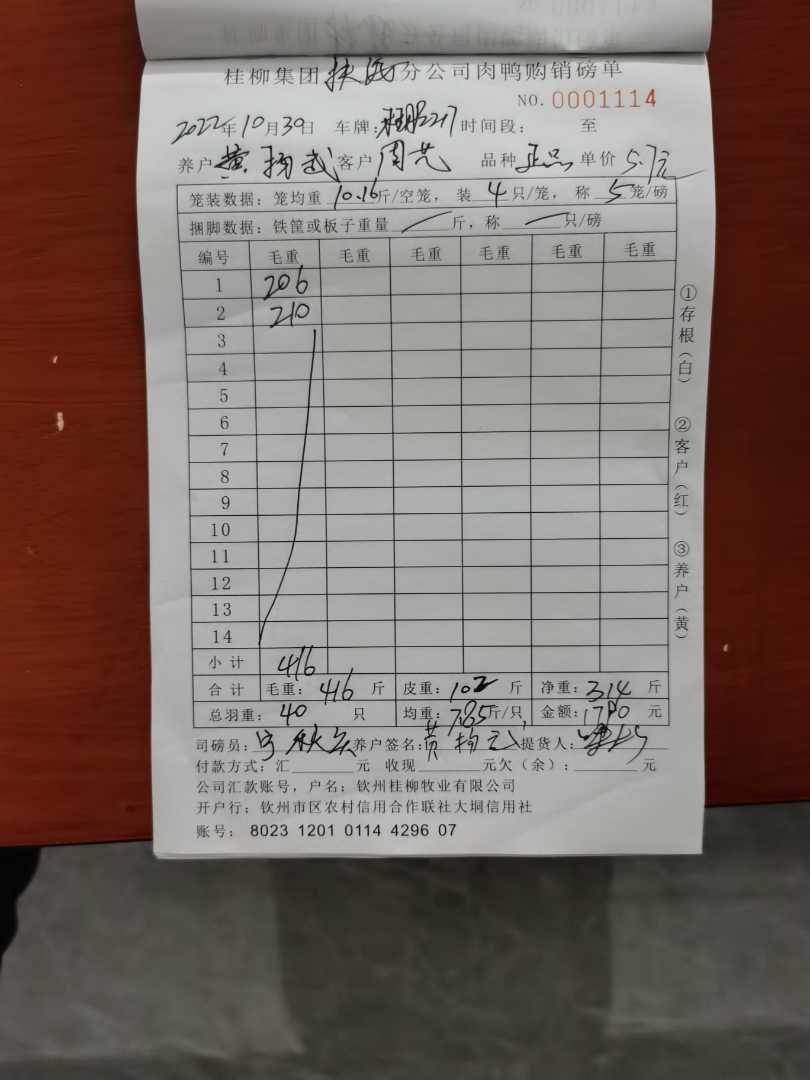 桂柳集团 扶绥 分公司肉鸭购销磅单
NO. 0001114
2022年10月30日 车牌: 时间段: 至
养户 黄扬武 客户 周艺 品种 正品 单价 5.7元
笼装数据: 笼均重 10.16斤/空笼, 装 4 只/笼, 称 5 笼/磅
捆脚数据: 铁筐或板子重量 斤, 称 只/磅
编号 毛重 毛重 毛重 毛重 毛重 毛重
1 206
2 210
3
4
5
6
7
8
9
10
11
12
13
14
小计 416
合计 毛重: 416 斤 皮重: 102 斤 净重: 314 斤
总羽重: 40 只 均重: 7.85斤/只, 金额: 1790 元
司磅员: 养户签名: 黄扬武 提货人:
付款方式: 汇 元 收现 元欠(余): 元
公司汇款账号, 户名: 钦州桂柳牧业有限公司
开户行: 钦州市区农村信用合作联社大垌信用社
账号: 8023 1201 0114 4296 07
①存根(白)
②客户(红)
③养户(黄)